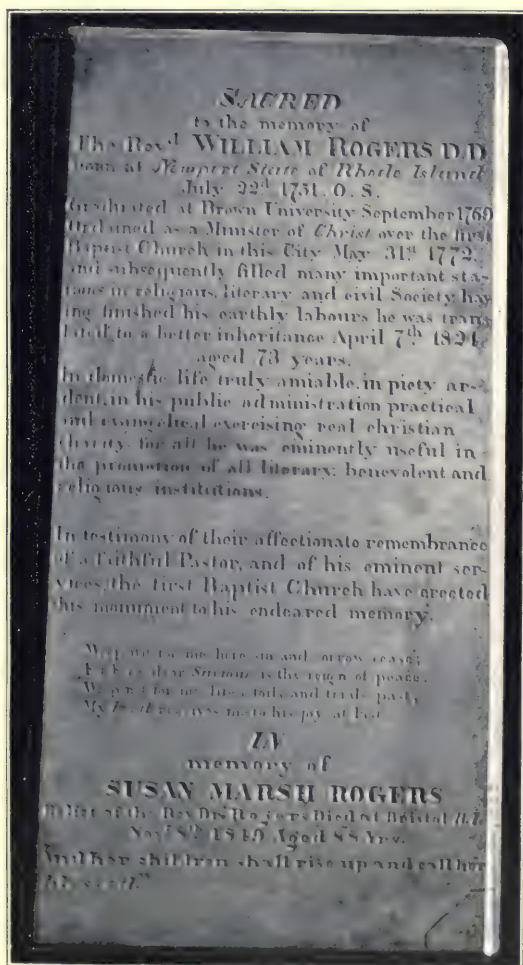 SACRED
to the memory of
The Rev.d WILLIAM ROGERS D.D
born at Newport State of Rhode Island
July 22d 1751. O. S.
Graduated at Brown University September 1769
Ordained as a Minister of Christ over the first
Baptist Church in this City May 31st 1772.
and subsequently filled many important sta-
tions in religious, literary and civil Society, hav
ing finished his earthly labours he was trans
lated to a better inheritance April 7th 1824.
aged 73 years.
In domestic life truly amiable, in piety ar-
dent, in his public administration practical
and evangelical exercising real christian
charity for all he was eminently useful in
the promotion of all literary: benevolent and
religious institutions.
In testimony of their affectionate remembrance
of a faithful Pastor, and of his eminent ser-
vices, the first Baptist Church have erected
this monument to his endeared memory.
Weep not for me here sin and sorrow cease;
dear Saviour is the reign of peace.
Weep not for me life's toils and trials past,
My to his joy at last
IN
memory of
SUSAN MARSH ROGERS
Relict of the Rev. Dr. Rogers Died at Bristol R.I.
Nov. 8th 1849 Aged 88 Yrs.
And her children shall rise up and call her
blessed."